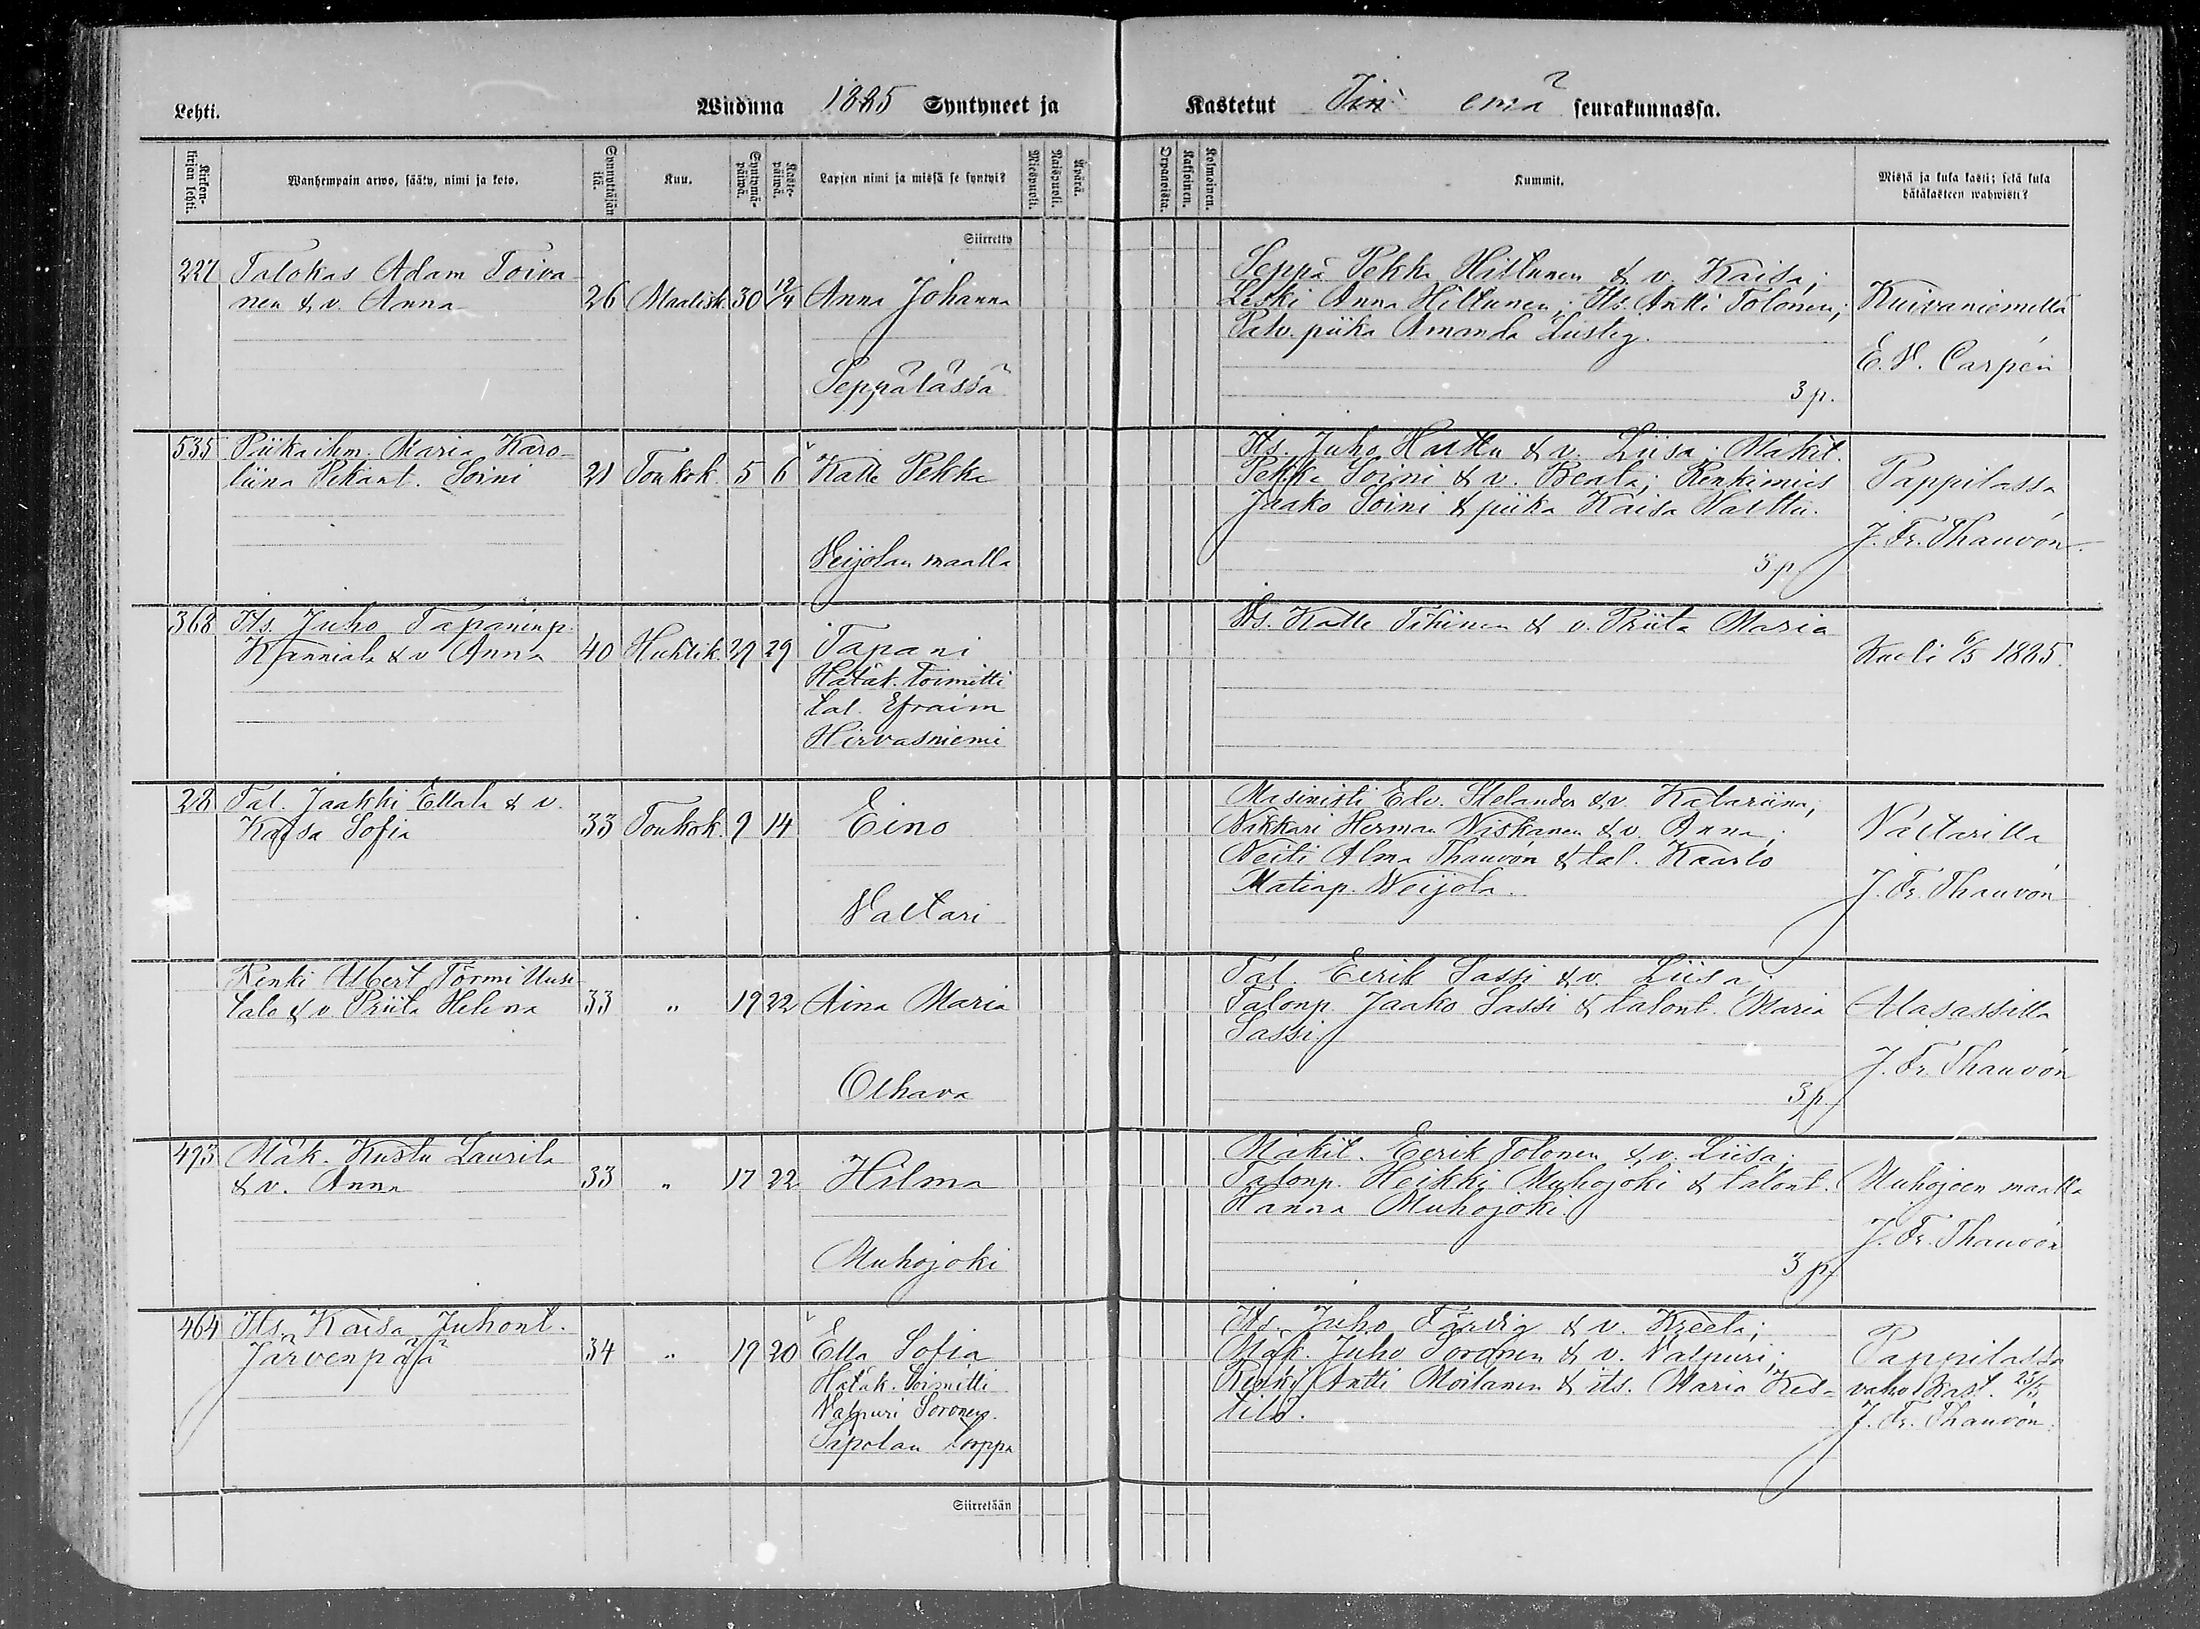 Lehti.
Wuonna 1885 Syntyneet ja Kastetut Iin emä seurakunnassa.
Kirkon-kirjan lehti.
Wanhempain arwo, sääty, nimi ja koto.
Synnyttäjän ikä.
Kuu.
Syntymä-päiwä.
Kaste-päiwä.
Lapsen nimi ja missä se syntyi?
Miespuoli.
Naispuoli.
Äpärä.
Orpanoista.
Kaksoinen.
Kolmoinen.
Kummit.
Missä ja kuka kasti; sekä kuka
hätäkasteen wahwisti?
Siirretty
227 Talokas Adam Toiva-
nen & v. Anna 26 Maalisk. 30 12/4 Anna Johanna
Seppälässä
Seppä Pekka Hiltunen & v. Kaisa;
Leski Anna Hiltunen; Its. Antti Tolonen;
Palv. piika Amanda Lustig.
3 p.
Kuivaniemellä
E. V. Carpén
535 Piikaihm. Maria Karo-
liina Pekant. Soini 21 Toukok. 5 6 Kalle Pekka
Veijolan maalla
Its. Juho Halttu & v. Liisa; Mäkit.
Pekka Soini & v. Beata; Renkimies
Jaako Soini & piika Kaisa Halttu.
3 p.
Pappilassa
J. Fr. Thauvón.
368 Its. Juho Tapaninp.
Kanniala & v. Anna 40 Huhtik. 29 29 Tapani
Hätäk. toimitti
tal. Efraim
Hirvasniemi
Its. Kalle Tihinen & v. Priita Maria
Kuoli 6/5 1885.
28 Tal. Jaakki Ellala & v.
Kaisa Sofia 33 Toukok. 9 14 Eino
Valtari
Masinisti Edv. Stelander & v. Katariina;
Nikkari Herman Niskanen & v. Anna;
Neiti Alma Thauvón & tal. Kaarlo
Matinp. Weijola.
Valtarilla
J. Fr. Thauvón
Renki Albert Törmi Uusi
talo & v. Priita Helena 33 " 19 22 Aina Maria
Olhava
Tal. Eerik Sassi & v. Liisa;
Talonp. Jaako Sassi & talont. Maria
Sassi.
3 p.
Alasassilla
J. Fr. Thauvón
493 Mäk. Kustu Laurila
& v. Anna 33 " 17 22 Hilma
Muhojoki
Mäkit. Eerik Tolonen & v. Liisa;
Talonp. Heikki Muhojoki & talont.
Hanna Muhojoki.
3 p.
Muhojoen maalla
J. Fr. Thauvón
464 Its. Kaisa Juhont.
Järvenpää 34 " 19 20 Ella Sofia
Hätäk. toimitti
Valpuri Soronen.
Sipolan torppa
Its. Juho Färdig & v. Kreeta;
Mäk. Juho Soronen & v. Valpuri;
Renki Antti Moilanen & its. Maria Kes-
tilä.
Pappilassa
vahv. kast. 25/5
J. Fr. Thauvón.
Siirretään